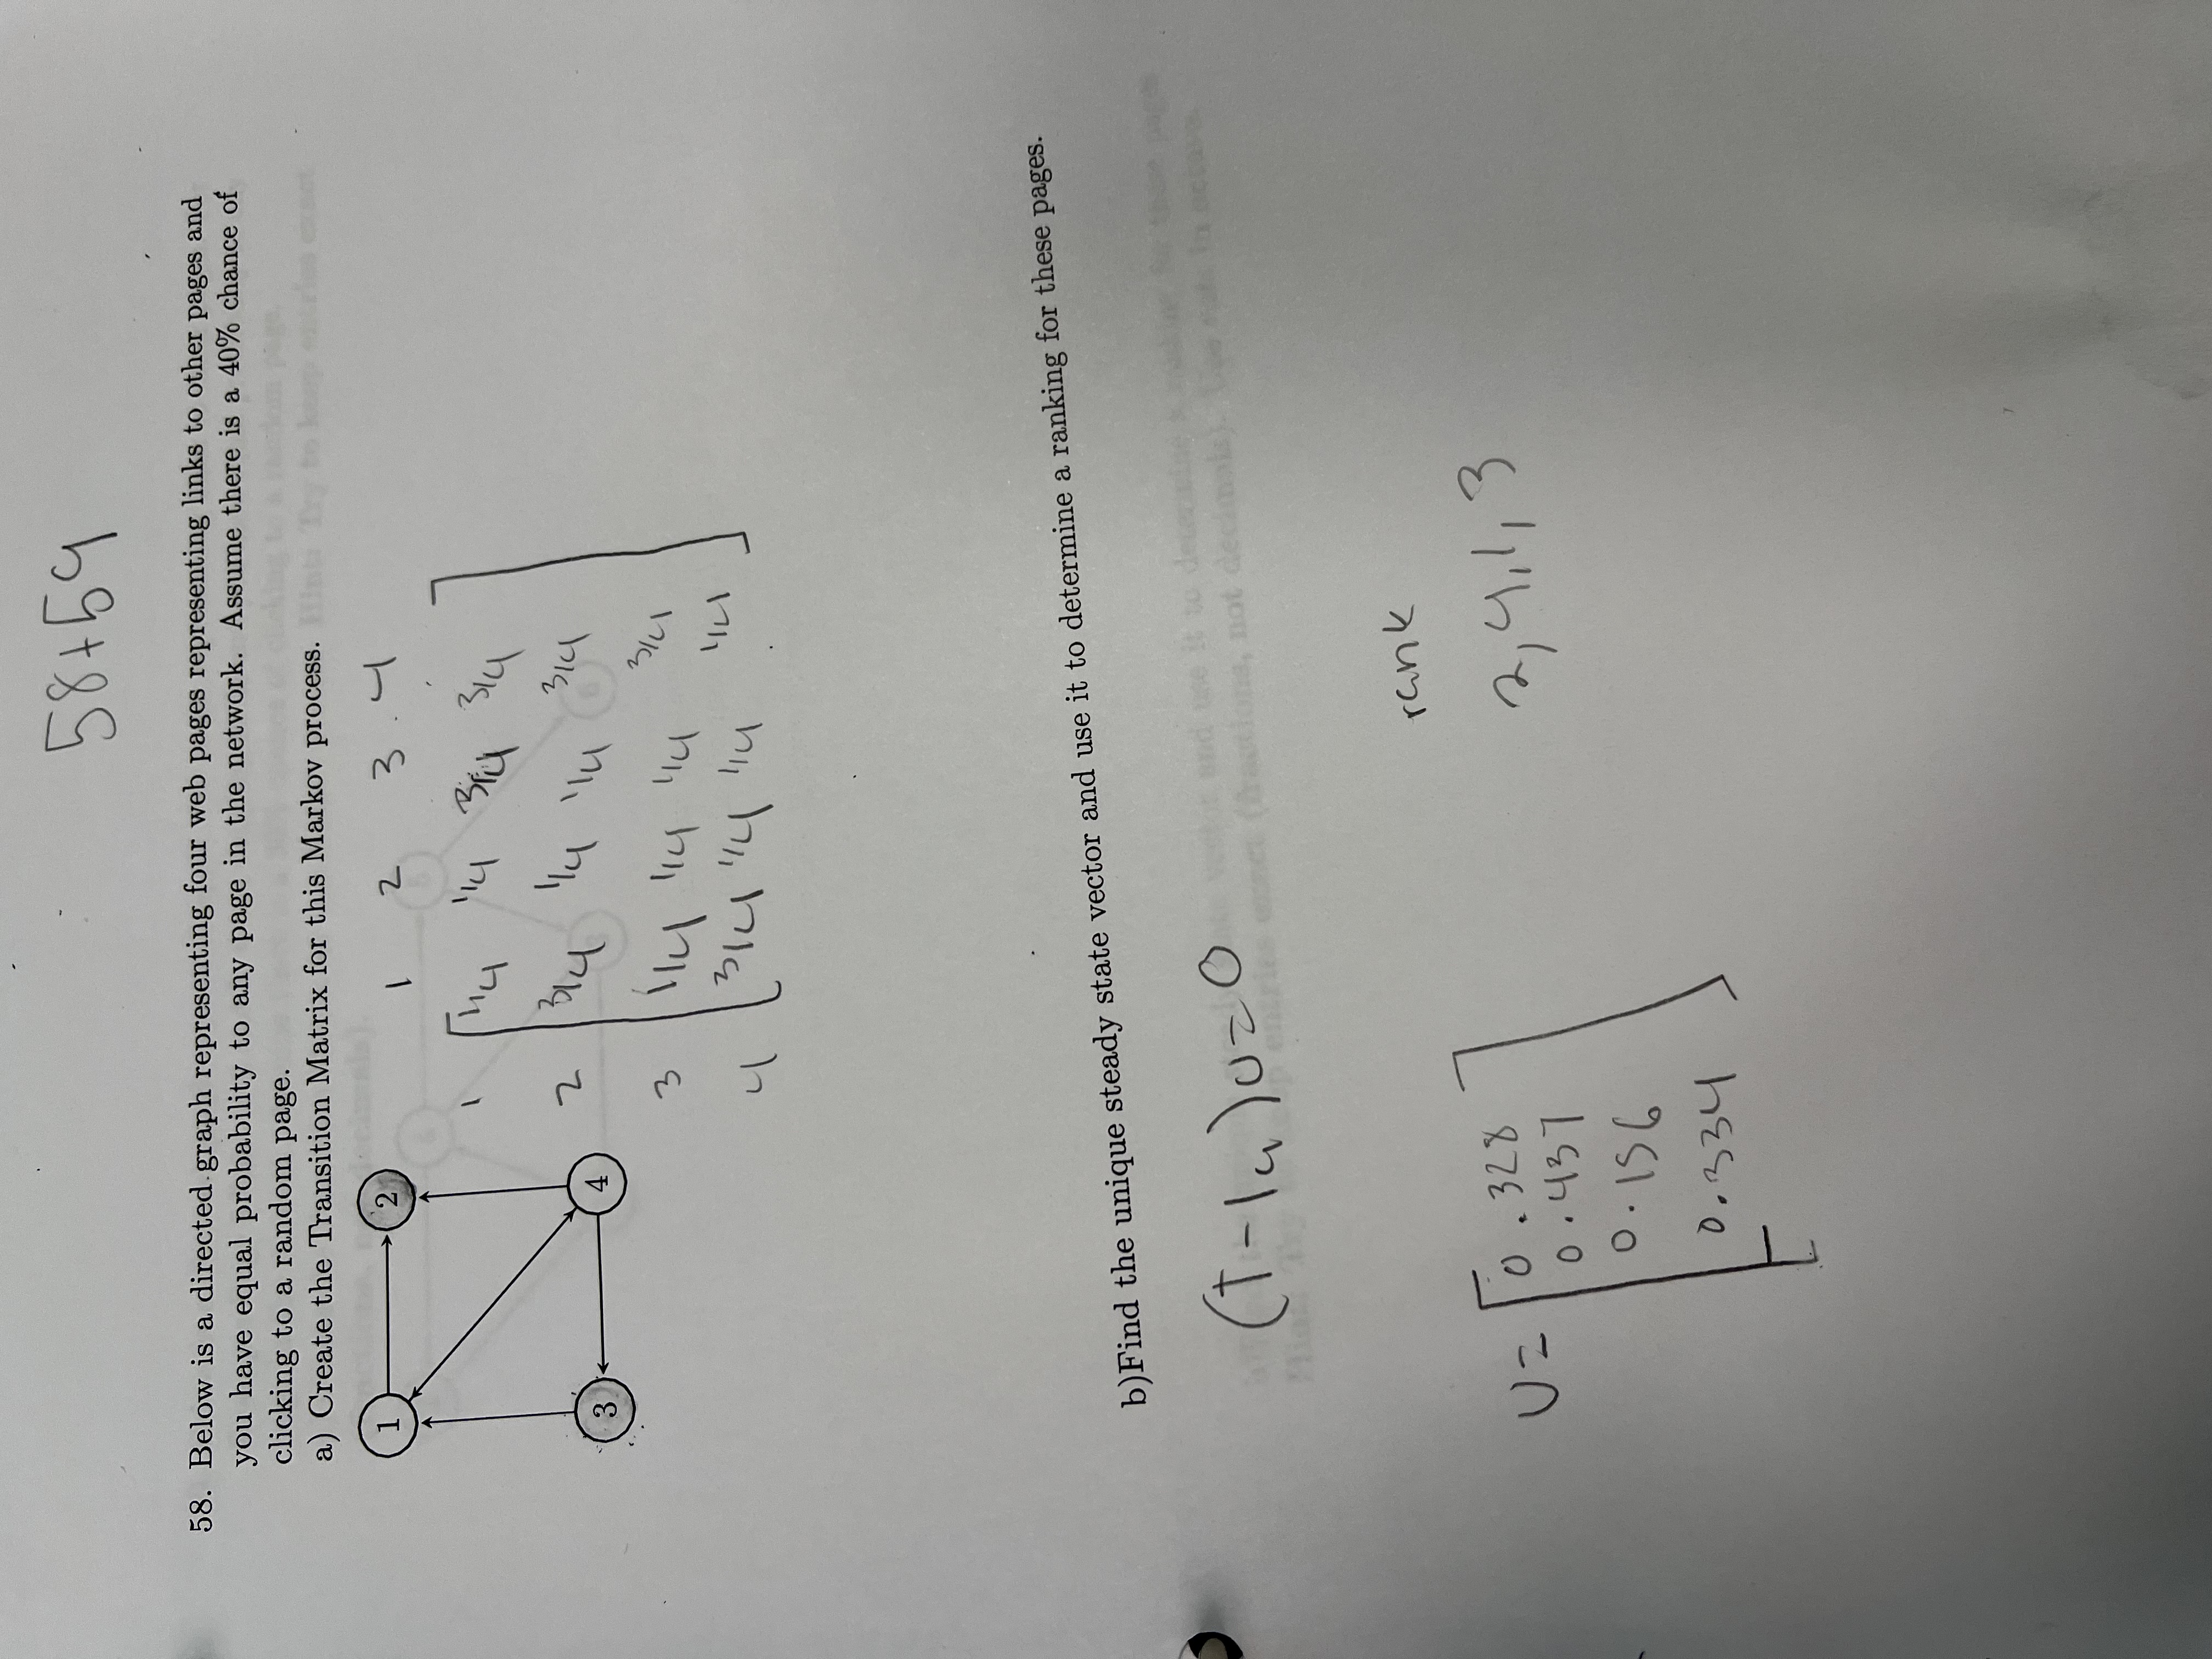 58+59
58. Below is a directed graph representing four web pages representing links to other pages and
you have equal probability to any page in the network. Assume there is a 40% chance of
clicking to a random page.
a) Create the Transition Matrix for this Markov process.
1 2
3 4
1 2 3 4
1 1/4 1/4 3/4 3/4
2 3/4 1/4 1/4 3/4
3 1/4 1/4 1/4 3/4
4 3/4 1/4 1/4 1/4
b)Find the unique steady state vector and use it to determine a ranking for these pages.
(T-I4)U=0
rank
2,4,1,3
U= 0.328
0.437
0.156
0.334